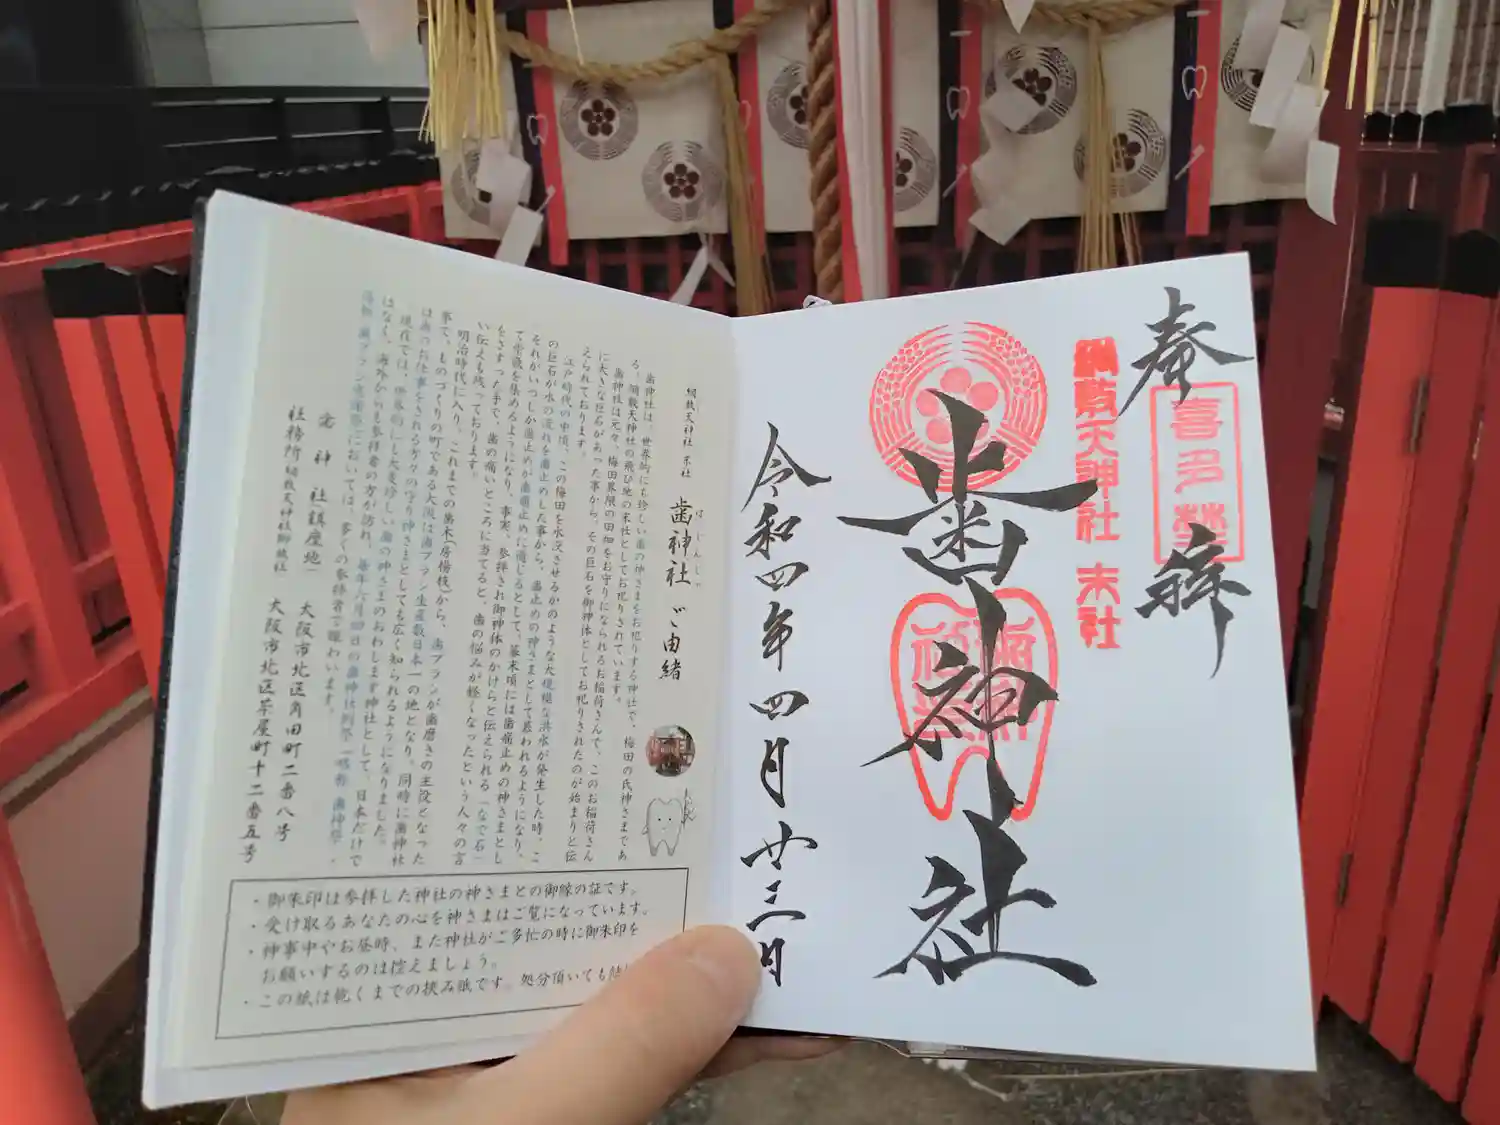 奉拝
喜多埜
綱敷天神社 末社
歯神社
令和四年四月廿三日
綱敷天神社 末社
歯神社 ご由緒
はじんじゃ
歯神社は、世界的にも珍しい歯の神さまをお祀りする神社で、梅田の氏神さまであ
る、綱敷天神社の飛び地の末社としてお祀りされています。
歯神社は元々、梅田界隈の田畑をお守りになられるお稲荷さんで、このお稲荷さん
に大きな巨石があった事から、その巨石を御神体としてお祀りされたのが始まりと伝
えられております。
江戸時代の中頃、この梅田を水没させるかのような大規模な洪水が発生した時、こ
の巨石が水の流れを歯止めした事から、歯止めの神さまとして慕われるようになり、
それがいつしか歯止めが歯痛止めに通じるとして、幕末頃には歯痛止めの神さまとし
て崇敬を集めるようになり、事実、参拝され御神体のかけらと伝えられる「なで石」
をさすった手で、歯の痛いところに当てると、歯の悩みが軽くなったという人々の言
い伝えも残っております。
明治時代に入り、これまでの歯木(房楊枝)から、歯ブラシが歯磨きの主役となった
事で、ものづくりの町である大阪は歯ブラシ生産数日本一の地となり、同時に歯神社
は歯のお仕事をされる方々の守り神さまとしても広く知られるようになりました。
現在では、世界的にも大変珍しい歯の神さまのおわします神社として、日本だけで
はなく、海外からも参拝者の方が訪れ、毎年六月四日の歯神社例祭
においては、多くの参拝者で賑わいます。
歯神社鎮座地 大阪市北区角田町二番八号
社務所 綱敷天神社御旅社 大阪市北区茶屋町十二番五号
・御朱印は参拝した神社の神さまとの御縁の証です。
・受け取るあなたの心を神さまはご覧になっています。
・神事中やお昼時、また神社がご多忙の時に御朱印を
お願いするのは控えましょう。
・この紙は乾くまでの挟み紙です。処分頂いても